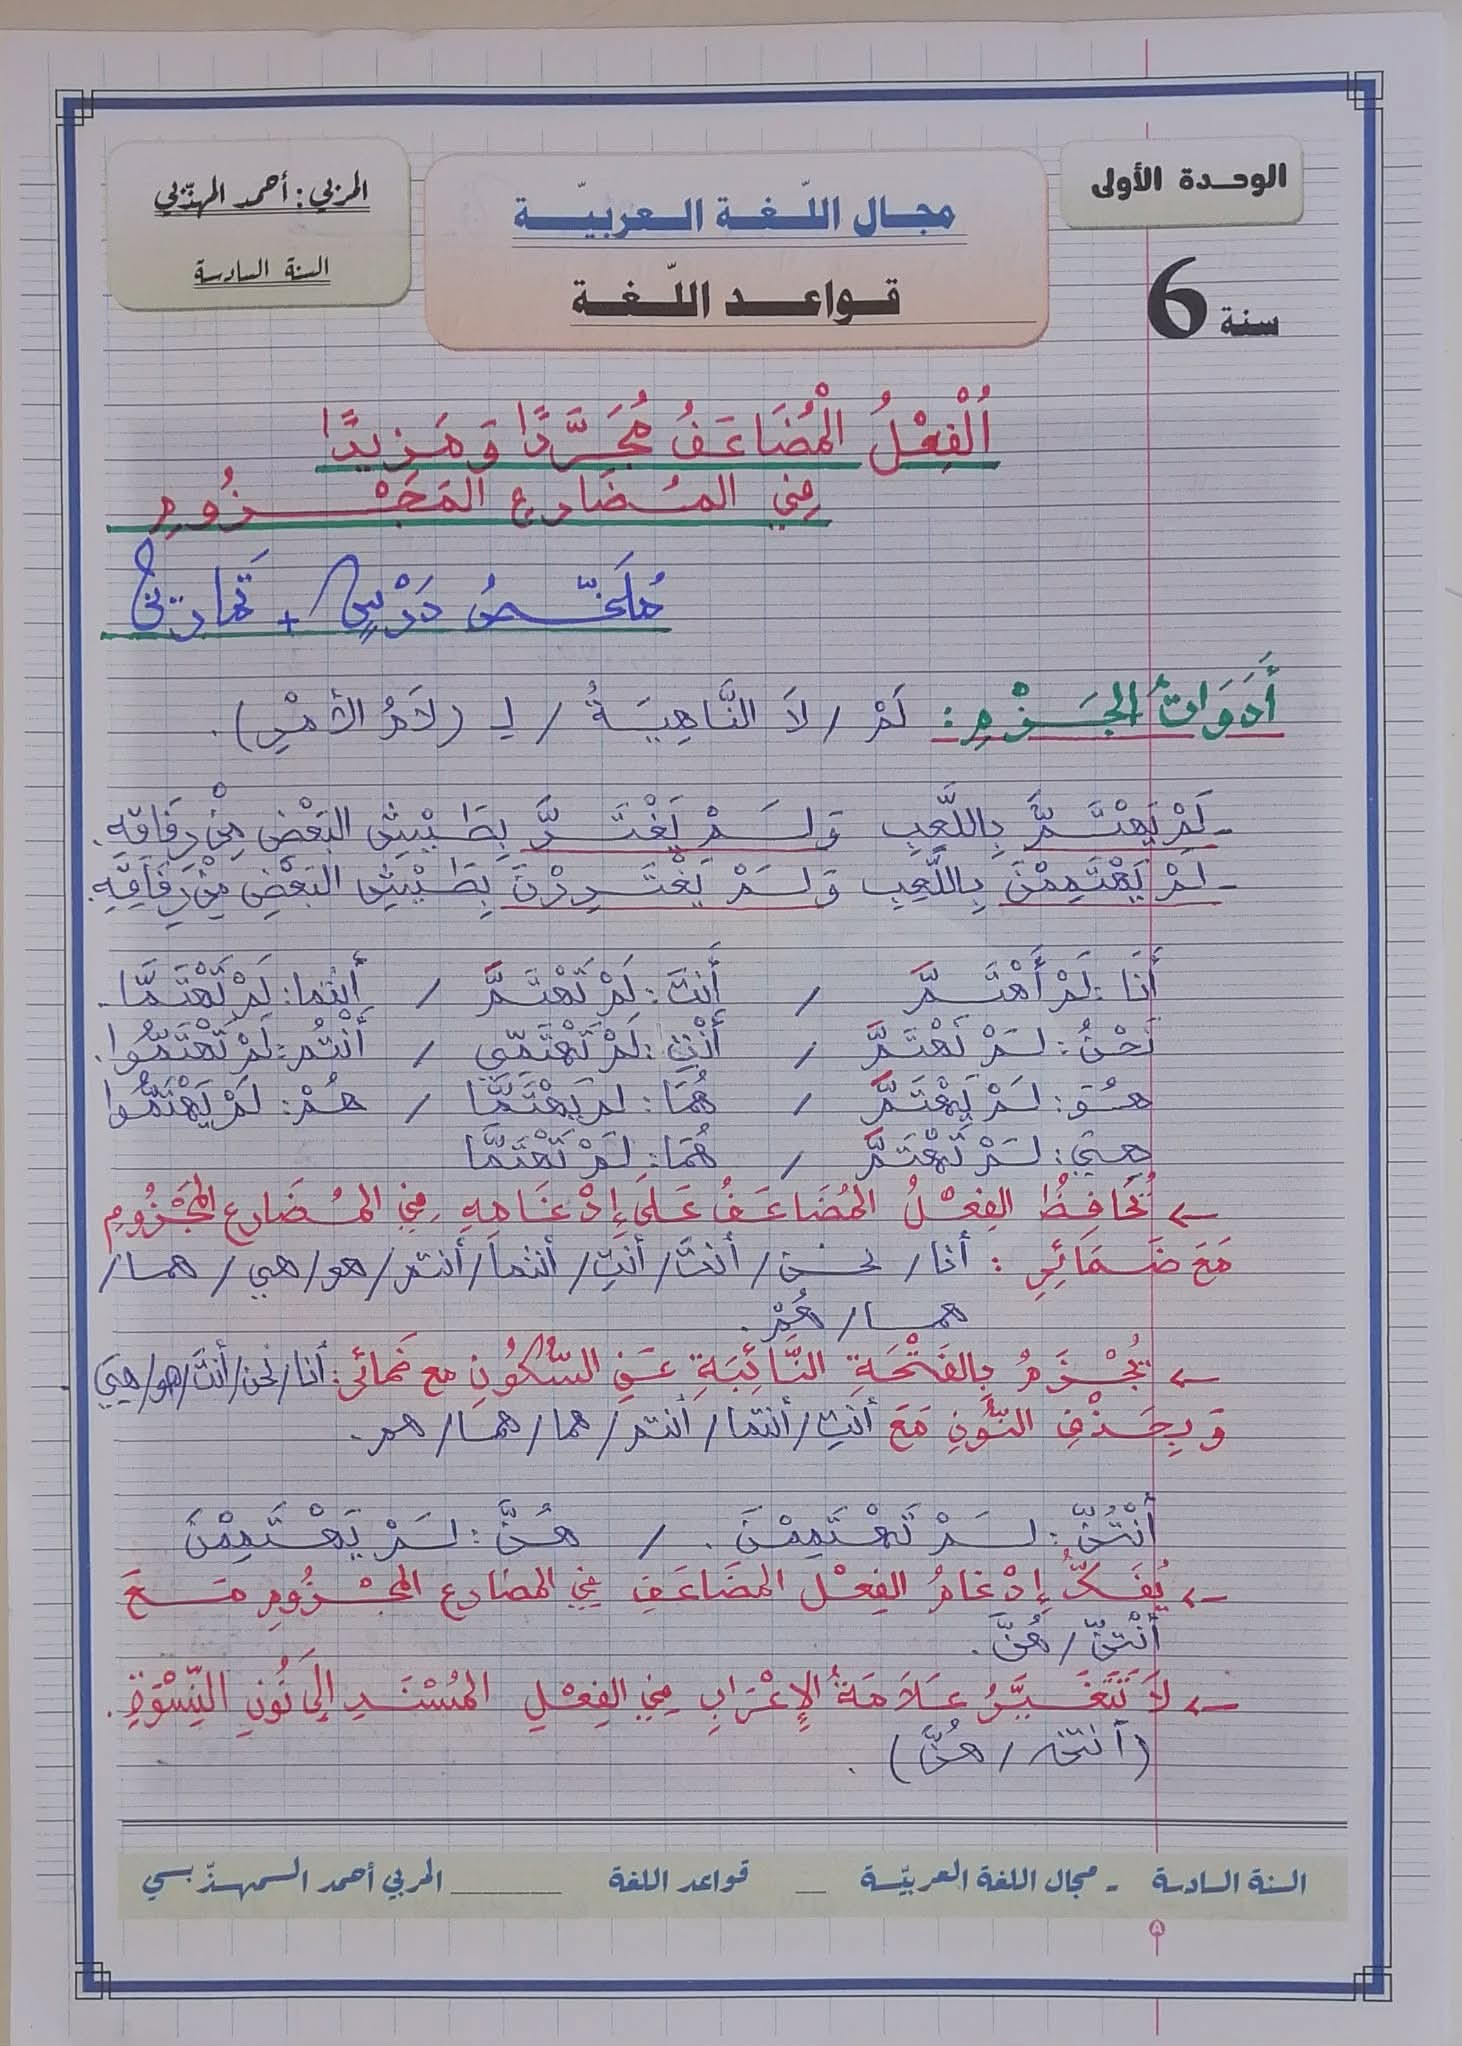 الوحدة الأولى
سنة 6
مجال اللّغة العربيّة
قواعد اللّغة
المربي : أحمد المهذّبي
السنة السادسة
اَلْفِعْلُ الْمُضَاعَفُ مُجَرَّدًا وَمَزِيدًا
فِي المُضَارِعِ المَجْزُومِ
مُلَخَّصُ دَرْسٍ + تَمَارِين
أَدَوَاتُ الجَزْمِ : لَمْ / لاَ النَّاهِيَةُ / لِـ (لاَمُ الأَمْرِ).
- لَمْ يَهْتَمَّ بِاللَّعِبِ وَلَمْ يَغْتَرَّ بِطَيْشِ البَعْضِ مِنْ رِفَاقِهِ.
- لَمْ يَهْتَمِمْنَ بِاللَّعِبِ وَلَمْ يَغْتَرِرْنَ بِطَيْشِ البَعْضِ مِنْ رِفَاقِهِ.
أَنَا : لَمْ أَهْتَمَّ / أَنتَ : لَمْ تَهْتَمَّ / أَنتُما : لَمْ تَهْتَمَّا.
نَحْنُ : لَمْ نَهْتَمَّ / أَنْتِ : لَمْ تَهْتَمِّي / أَنْتُم : لَمْ تَهْتَمُّوا.
هُوَ : لَمْ يَهْتَمَّ / هُمَا : لم يَهْتَمَّا / هُمْ : لَمْ يَهْتَمُّوا
هِيَ : لَمْ تَهْتَمَّ / هُمَا : لَمْ تَهْتَمَّا
← يُحَافِظُ الفِعْلُ المُضَاعَفُ عَلَى إِدْغَامِهِ فِي المُضَارِعِ المَجْزُومِ
مَعَ ضَمَائِرِ : أنا / نحن / أنتَ / أنتِ / أنتما / أنتم / هو / هي / هما /
هما / هُمْ.
← يُجْزَمُ بِالفَتْحَةِ النَّائِبَةِ عَنِ السُّكُونِ مع ضمائر : أنا / نحن / أنتَ / هو / هِيَ
وَبِحَذْفِ النُّونِ مَعَ أنتِ / أنتما / أنتم / هما / هما / هم.
أَنْتُنَّ : لَمْ تَهْتَمِمْنَ. / هُنَّ : لَمْ يَهْتَمِمْنَ
← يُفَكُّ إِدْغَامُ الفِعْلِ المضَاعَفِ فِي المضارع المجْزُومِ مَعَ
أَنْتُنَّ / هُنَّ.
← لاَ تَتَغَيَّرُ عَلاَمَةُ الإِعْرَابِ فِي الفِعْلِ المُسْنَدِ إِلَى نُونِ النِّسْوَةِ.
(أنتنّ / هُنَّ).
السنة السادسة - مجال اللغة العربيّة _ قواعد اللغة ______ المربي أحمد المهذّبي